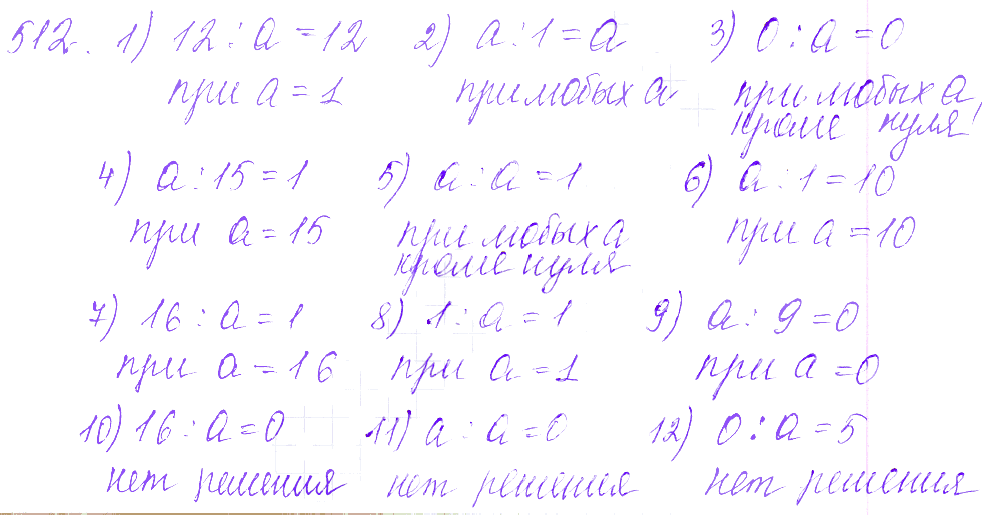 512. 1) 12 : a = 12 2) a : 1 = a 3) 0 : a = 0
при a = 1 при любых a при любых a,
кроме нуля
4) a : 15 = 1 5) a : a = 1 6) a : 1 = 10
при a = 15 при любых a при a = 10
кроме нуля
7) 16 : a = 1 8) 1 : a = 1 9) a : 9 = 0
при a = 16 при a = 1 при a = 0
10) 16 : a = 0 11) a : a = 0 12) 0 : a = 5
нет решения нет решения нет решения